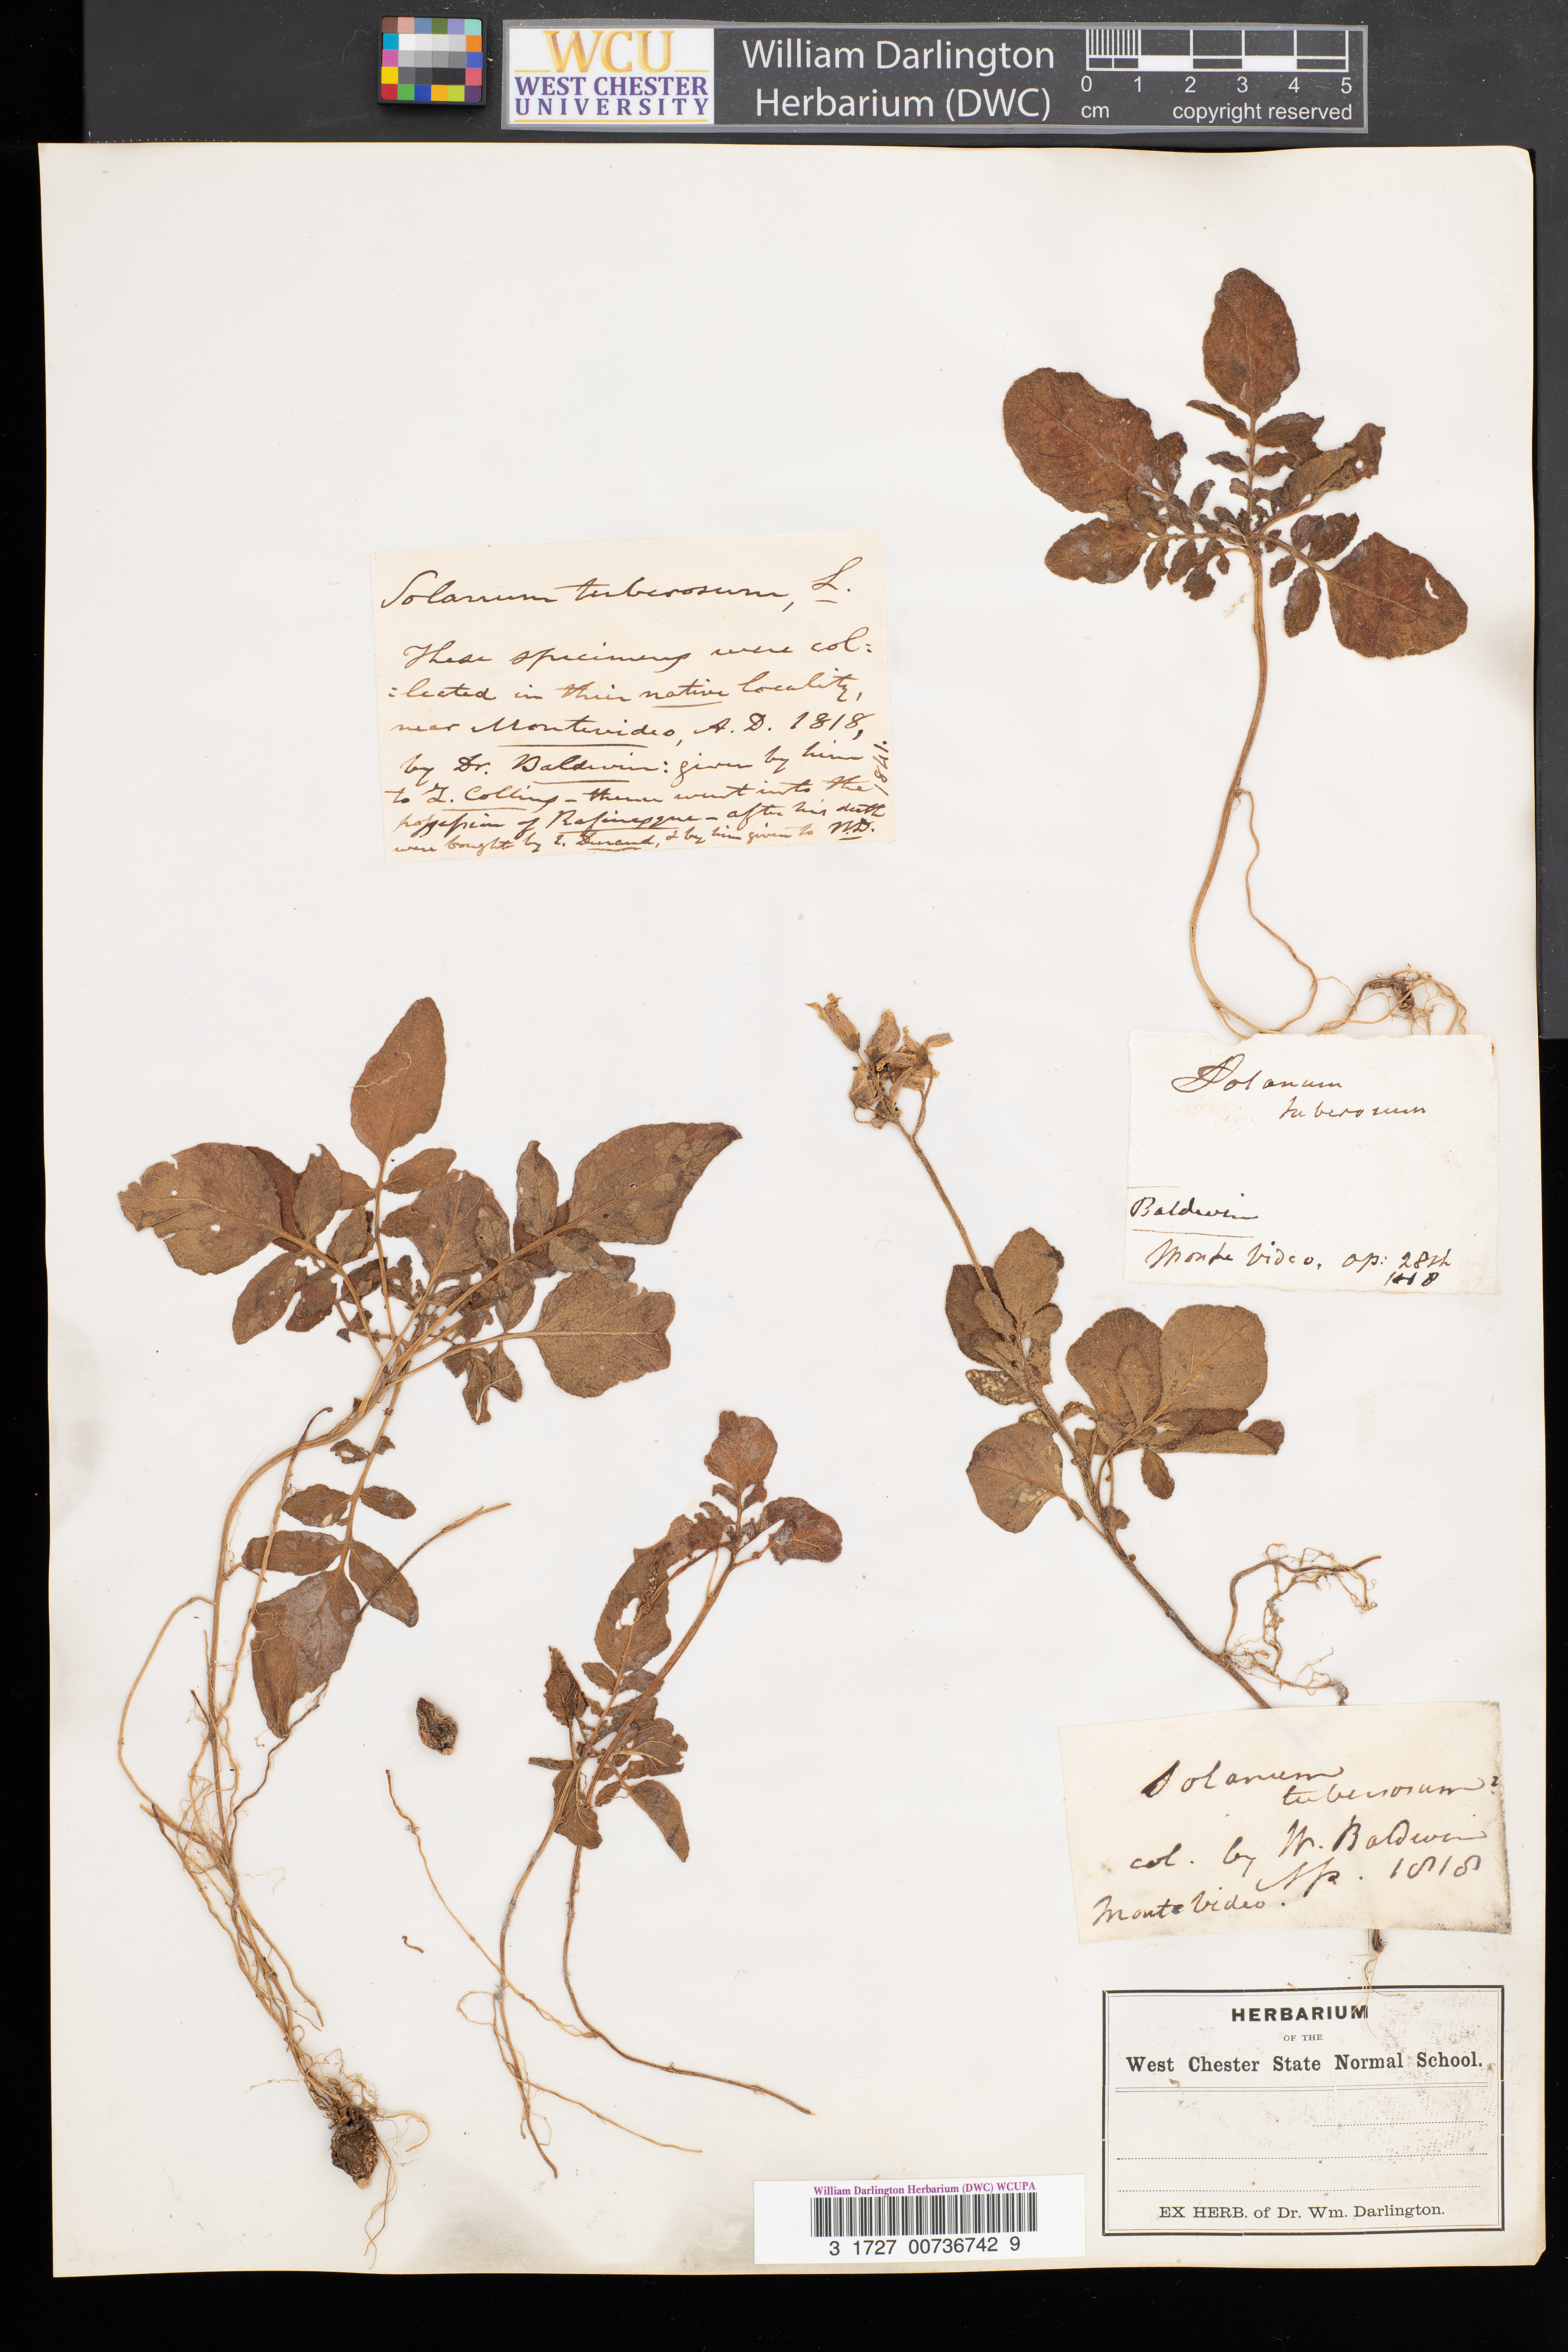 WCU
WEST CHESTER
UNIVERSITY
William Darlington
Herbarium (DWC)
0 1 2 3 4 5
cm copyright reserved
Solanum tuberosum, L.
These specimens were col=
=lected in their native locality,
near Montevideo, A. D. 1818,
by Dr. Baldwin: given by him
to Z. Collins – thence went into the
possession of Rafinesque – after his death
were bought by E. Durand, & by him given to WD.
1841.
Solanum
tuberosum
Baldwin
Monte Video, ap: 28th
1818
Solanum
tuberosum?
col. by W. Baldwin
Ap. 1818
Monte Video.
HERBARIUM
OF THE
West Chester State Normal School.
EX HERB. of Dr. Wm. Darlington.
William Darlington Herbarium (DWC) WCUPA
3 1727 00736742 9